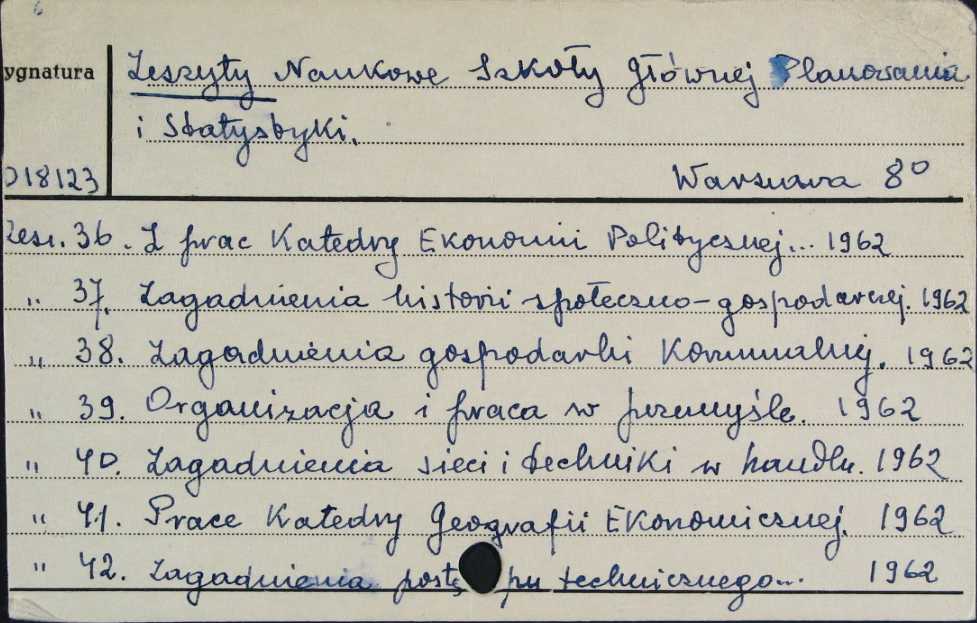 6
ygnatura Zeszyty Naukowe Szkoły Głównej Planowania
i Statystyki.
D18123 Warszawa 8°
Zesz. 36. Z prac Katedry Ekonomii Politycznej... 1962
" 37. Zagadnienia historii społeczno-gospodarczej. 1962
" 38. Zagadnienia gospodarki Komunalnej. 1962
" 39. Organizacja i praca w przemyśle. 1962
" 40. Zagadnienia sieci i techniki w handlu. 1962
" 41. Prace Katedry Geografii Ekonomicznej. 1962
" 42. Zagadnienia postę pu technicznego... 1962